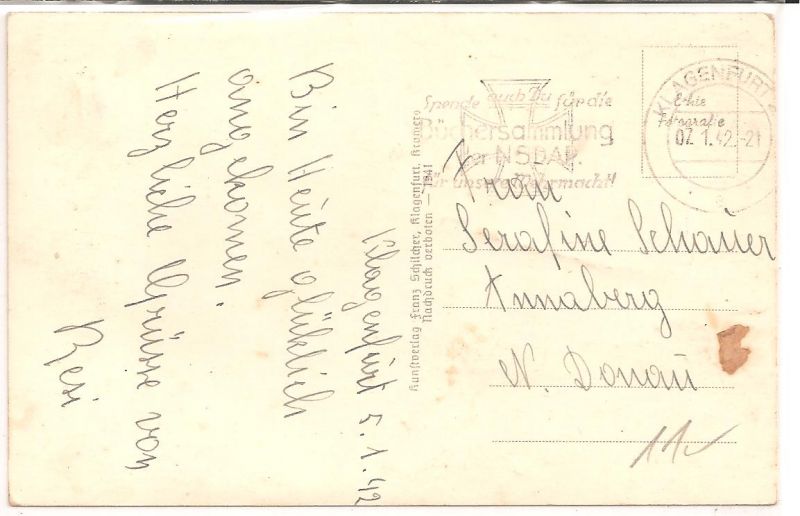 Klagenfurt 5.1.42
Bin Heute glüklich
angekomen.
Herzliche Grüsse von
Resi
Kunstverlag Franz Schilcher, Klagenfurt, Kramerg
Nachdruck verboten — 1941
Spende auch Du für die
Büchersammlung
der NSDAP.
für unsere Wehrmacht!
KLAGENFURT 2
07.1.42.-21
a
Echte
Fotografie
Frau
Serafine Schauer
Annaberg
N. Donau
11